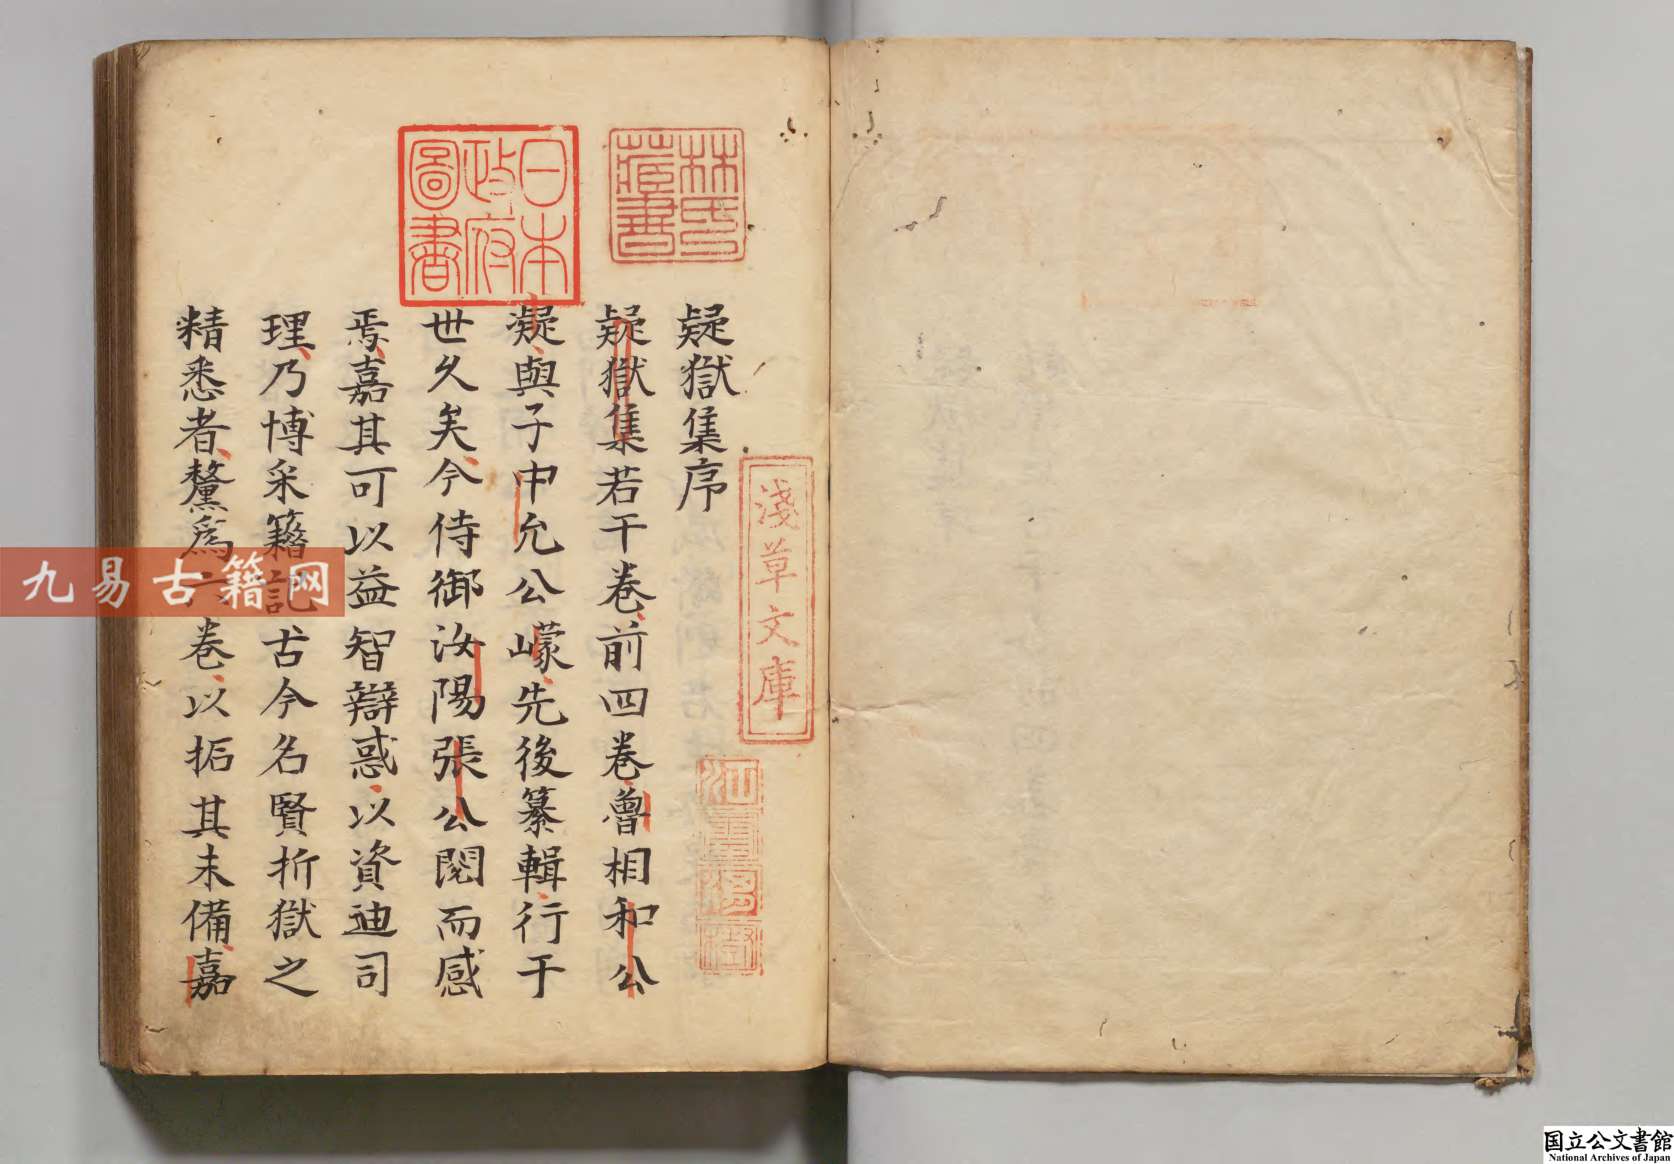 疑獄集序
疑獄集若干卷前四卷魯相和公
凝與子中允公㠓先後纂輯行于
世久矣今侍御汝陽張公閱而感
焉嘉其可以益智辯惑以資迪司
理乃博采籍記古今名賢折獄之
精悉者釐為六卷以拓其未備嘉
林氏
藏書
日本
政府
圖書
淺草文庫
九易古籍网
国立公文書館
National Archives of Japan